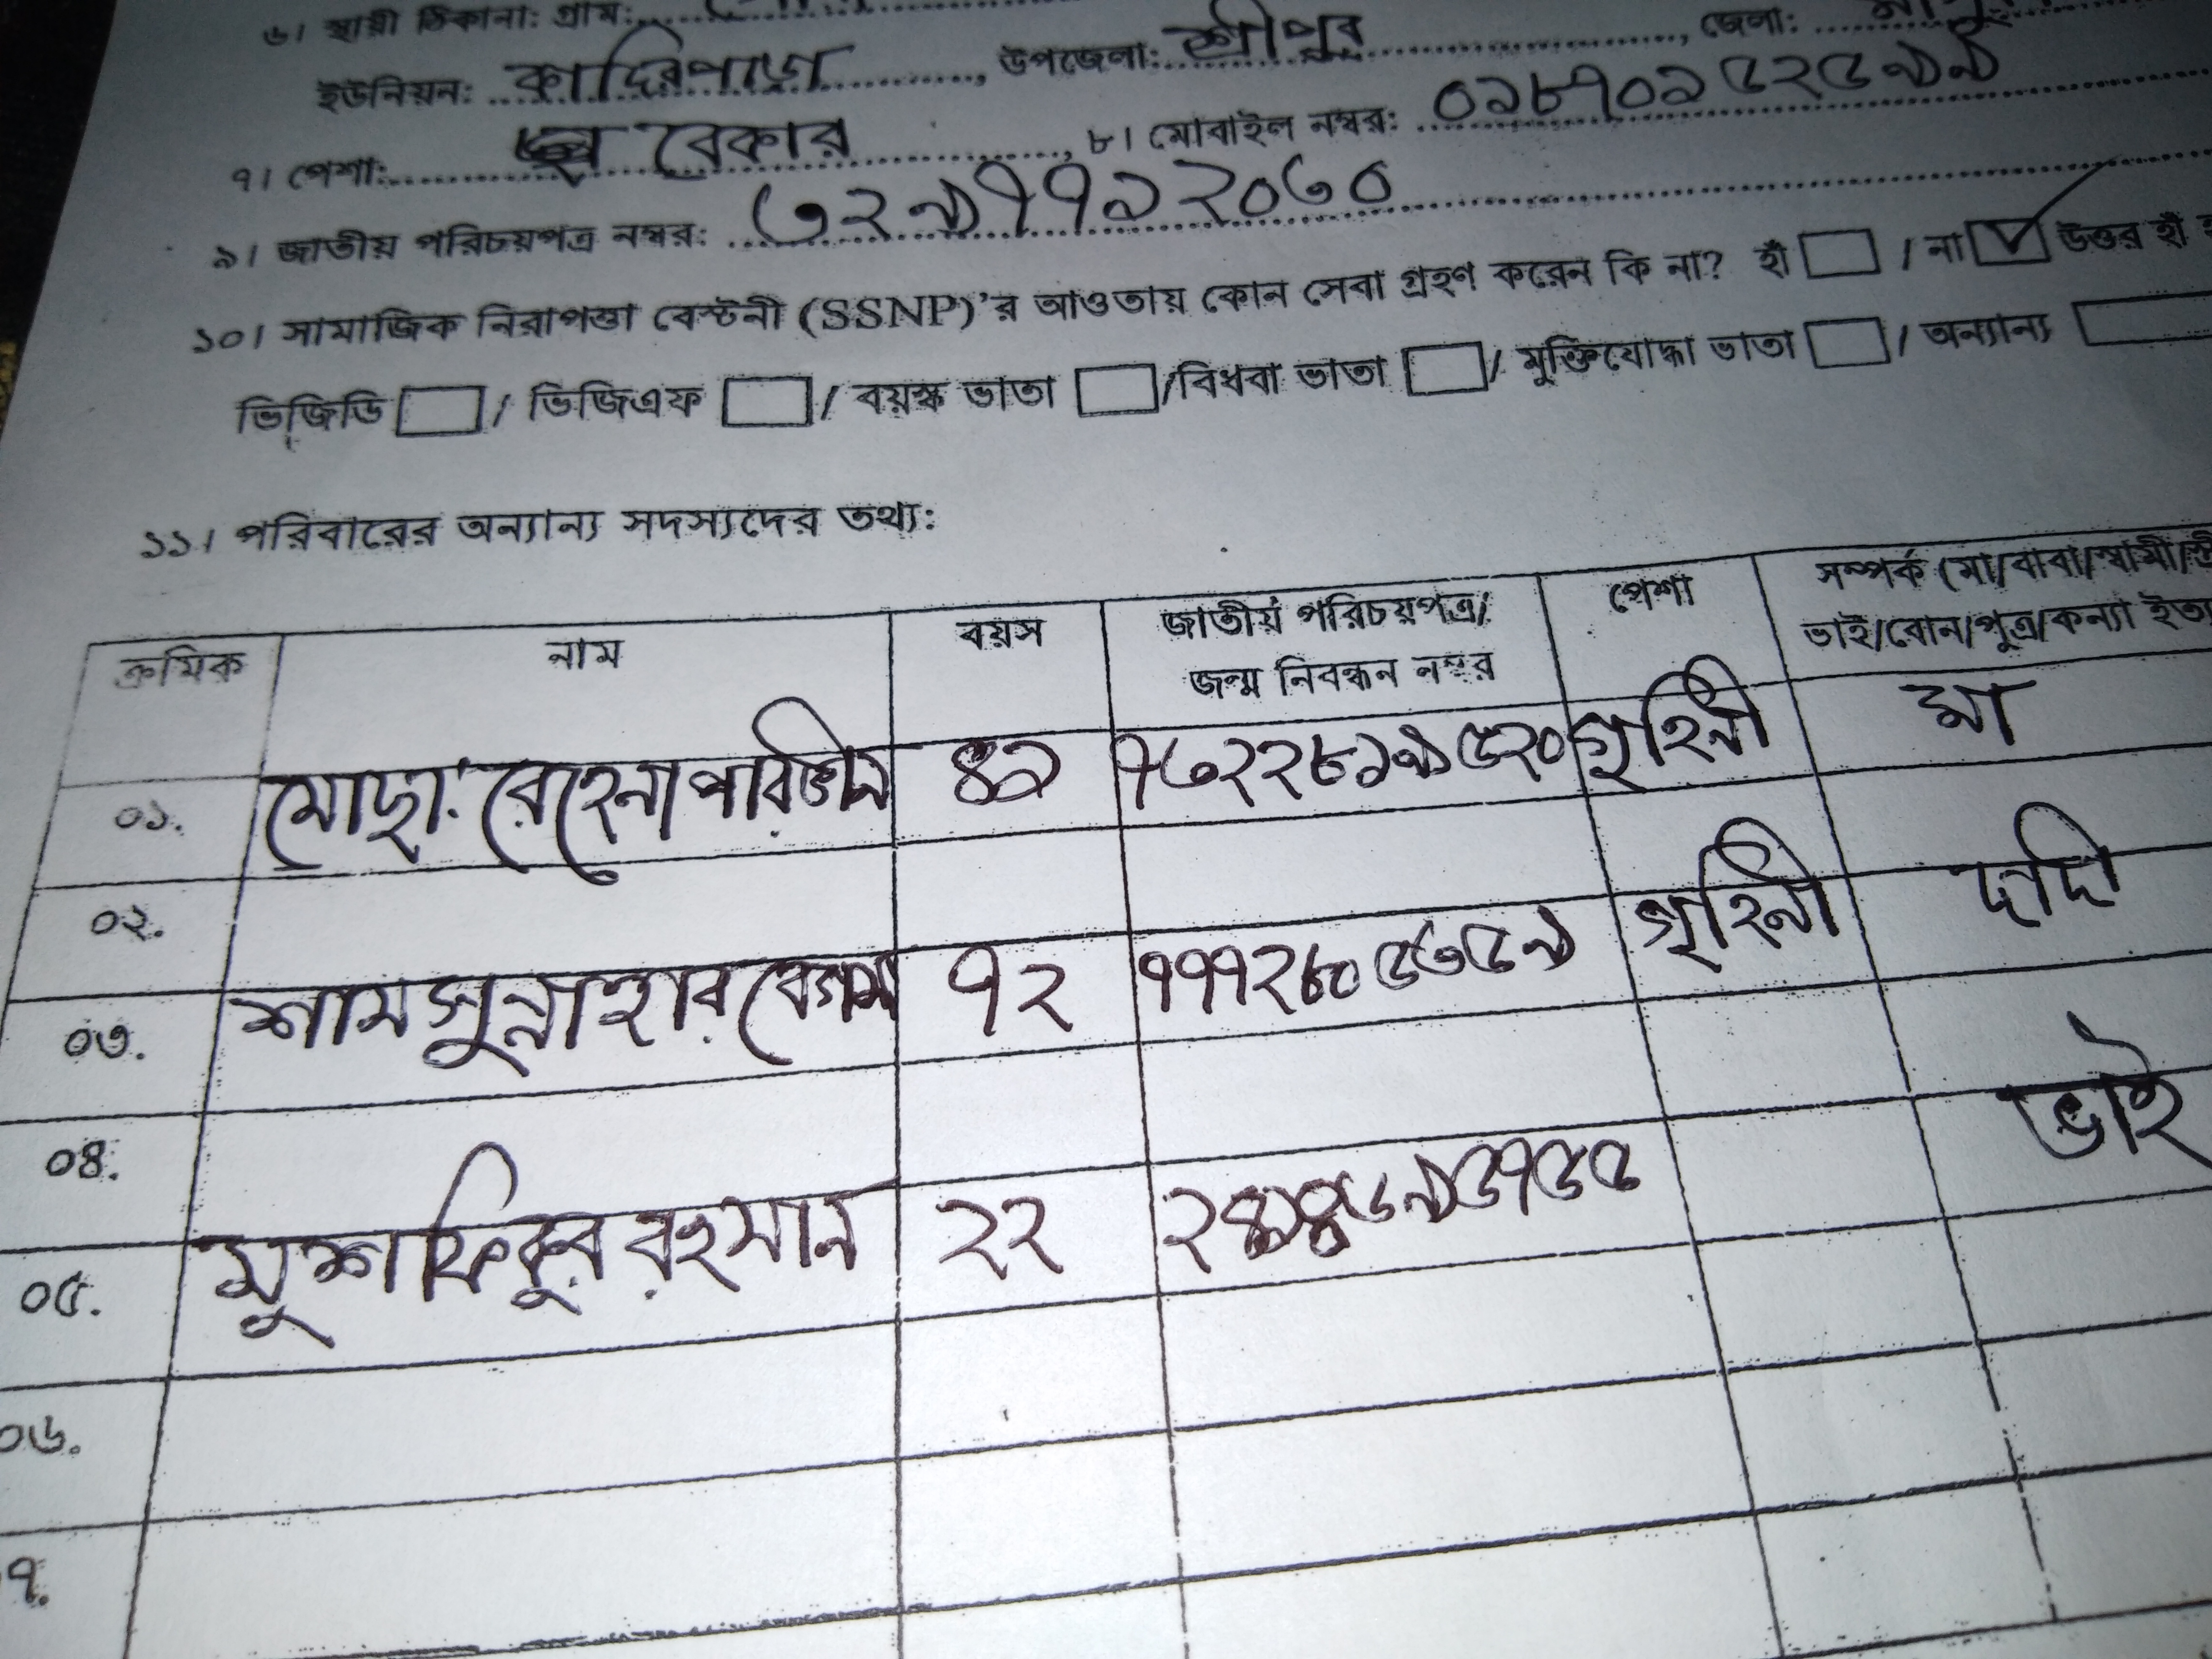 ৬। স্থায়ী ঠিকানা: গ্রাম:
ইউনিয়ন: কাদিরপাড়া, উপজেলা: শ্রীপুর, জেলা:
৭। পেশা: বেকার, ৮। মোবাইল নম্বর: ০১৮৭০১৫২৫৯৯
৯। জাতীয় পরিচয়পত্র নম্বর: ৩২৯৭৭১২০৬০
১০। সামাজিক নিরাপত্তা বেস্টনী (SSNP)'র আওতায় কোন সেবা গ্রহণ করেন কি না? হাঁ / না উত্তর হাঁ
ভিজিডি / ভিজিএফ / বয়স্ক ভাতা / বিধবা ভাতা / মুক্তিযোদ্ধা ভাতা / অন্যান্য
১১। পরিবারের অন্যান্য সদস্যদের তথ্য:
ক্রমিক নাম বয়স জাতীয় পরিচয়পত্র/ পেশা সম্পর্ক (মা/বাবা/স্বামী/
জন্ম নিবন্ধন নম্বর ভাই/বোন/পুত্র/কন্যা
০১. মোছা: রেহেনা পারভীন ৪১ ৭৬২২৮১৯৫২০ গৃহিনী মা
০২.
০৩. শামসুন্নাহার বেগম ৭২ ৭৭৭২৮০৫৬৫৯ গৃহিনী দাদি
০৪.
০৫. মুশফিকুর রহমান ২২ ভাই
০৬.
৭.